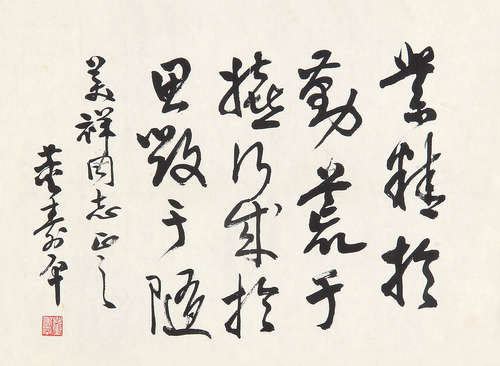 業精於
勤荒于
嬉行成於
思毀于隨
美祥同志正之
董寿平